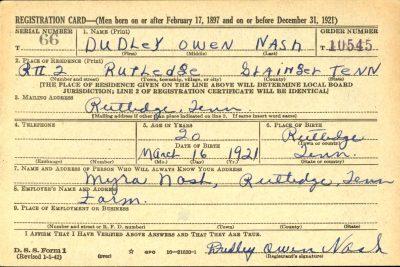 REGISTRATION CARD—(Men born on or after February 17, 1897 and on or before December 31, 1921)
SERIAL NUMBER 1. NAME (Print) ORDER NUMBER
T 66 DUDLEY OWEN NASH T 10545
(First) (Middle) (Last)
2. PLACE OF RESIDENCE (Print)
Rt 2 RUTLEDGE GRAINGER TENN
(Number and street) (Town, township, village, or city) (County) (State)
[THE PLACE OF RESIDENCE GIVEN ON THE LINE ABOVE WILL DETERMINE LOCAL BOARD
JURISDICTION; LINE 2 OF REGISTRATION CERTIFICATE WILL BE IDENTICAL]
3. MAILING ADDRESS
Rutledge, Tenn.
[Mailing address if other than place indicated on line 2. If same insert word same]
4. TELEPHONE 5. AGE IN YEARS 6. PLACE OF BIRTH
20 Rutledge
DATE OF BIRTH (Town or county)
March 16 1921 Tenn.
(Exchange) (Number) (Mo.) (Day) (Yr.) (State or country)
7. NAME AND ADDRESS OF PERSON WHO WILL ALWAYS KNOW YOUR ADDRESS
Myra Nash, Rutledge, Tenn
8. EMPLOYER'S NAME AND ADDRESS
Farm.
9. PLACE OF EMPLOYMENT OR BUSINESS
(Number and street or R. F. D. number) (Town) (County) (State)
I AFFIRM THAT I HAVE VERIFIED ABOVE ANSWERS AND THAT THEY ARE TRUE.
D. S. S. Form 1 Dudley Owen Nash
(Revised 1-1-42) (over) GPO 16—21630-1 (Registrant's signature)